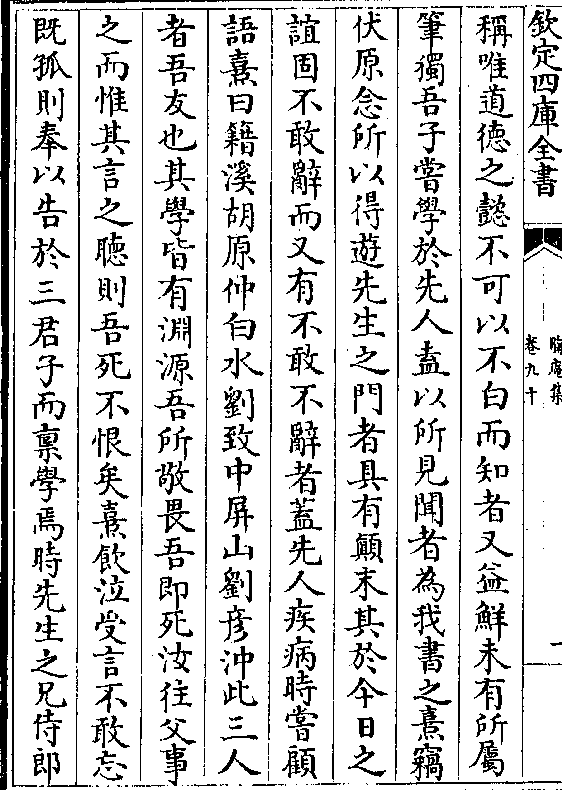 欽定四庫全書
晦庵集
卷九十
一
稱唯道德之懿不可以不白而知者又益鮮未有所屬
筆獨吾子嘗學於先人盍以所見聞者為我書之熹竊
伏原念所以得遊先生之門者具有顛末其於今日之
誼固不敢辭而又有不敢不辭者蓋先人疾病時嘗顧
語熹曰籍溪胡原仲白水劉致中屏山劉彥沖此三人
者吾友也其學皆有淵源吾所敬畏吾即死汝往父事
之而惟其言之聽則吾死不恨矣熹飲泣受言不敢忘
既孤則奉以告於三君子而稟學焉時先生之兄侍郎